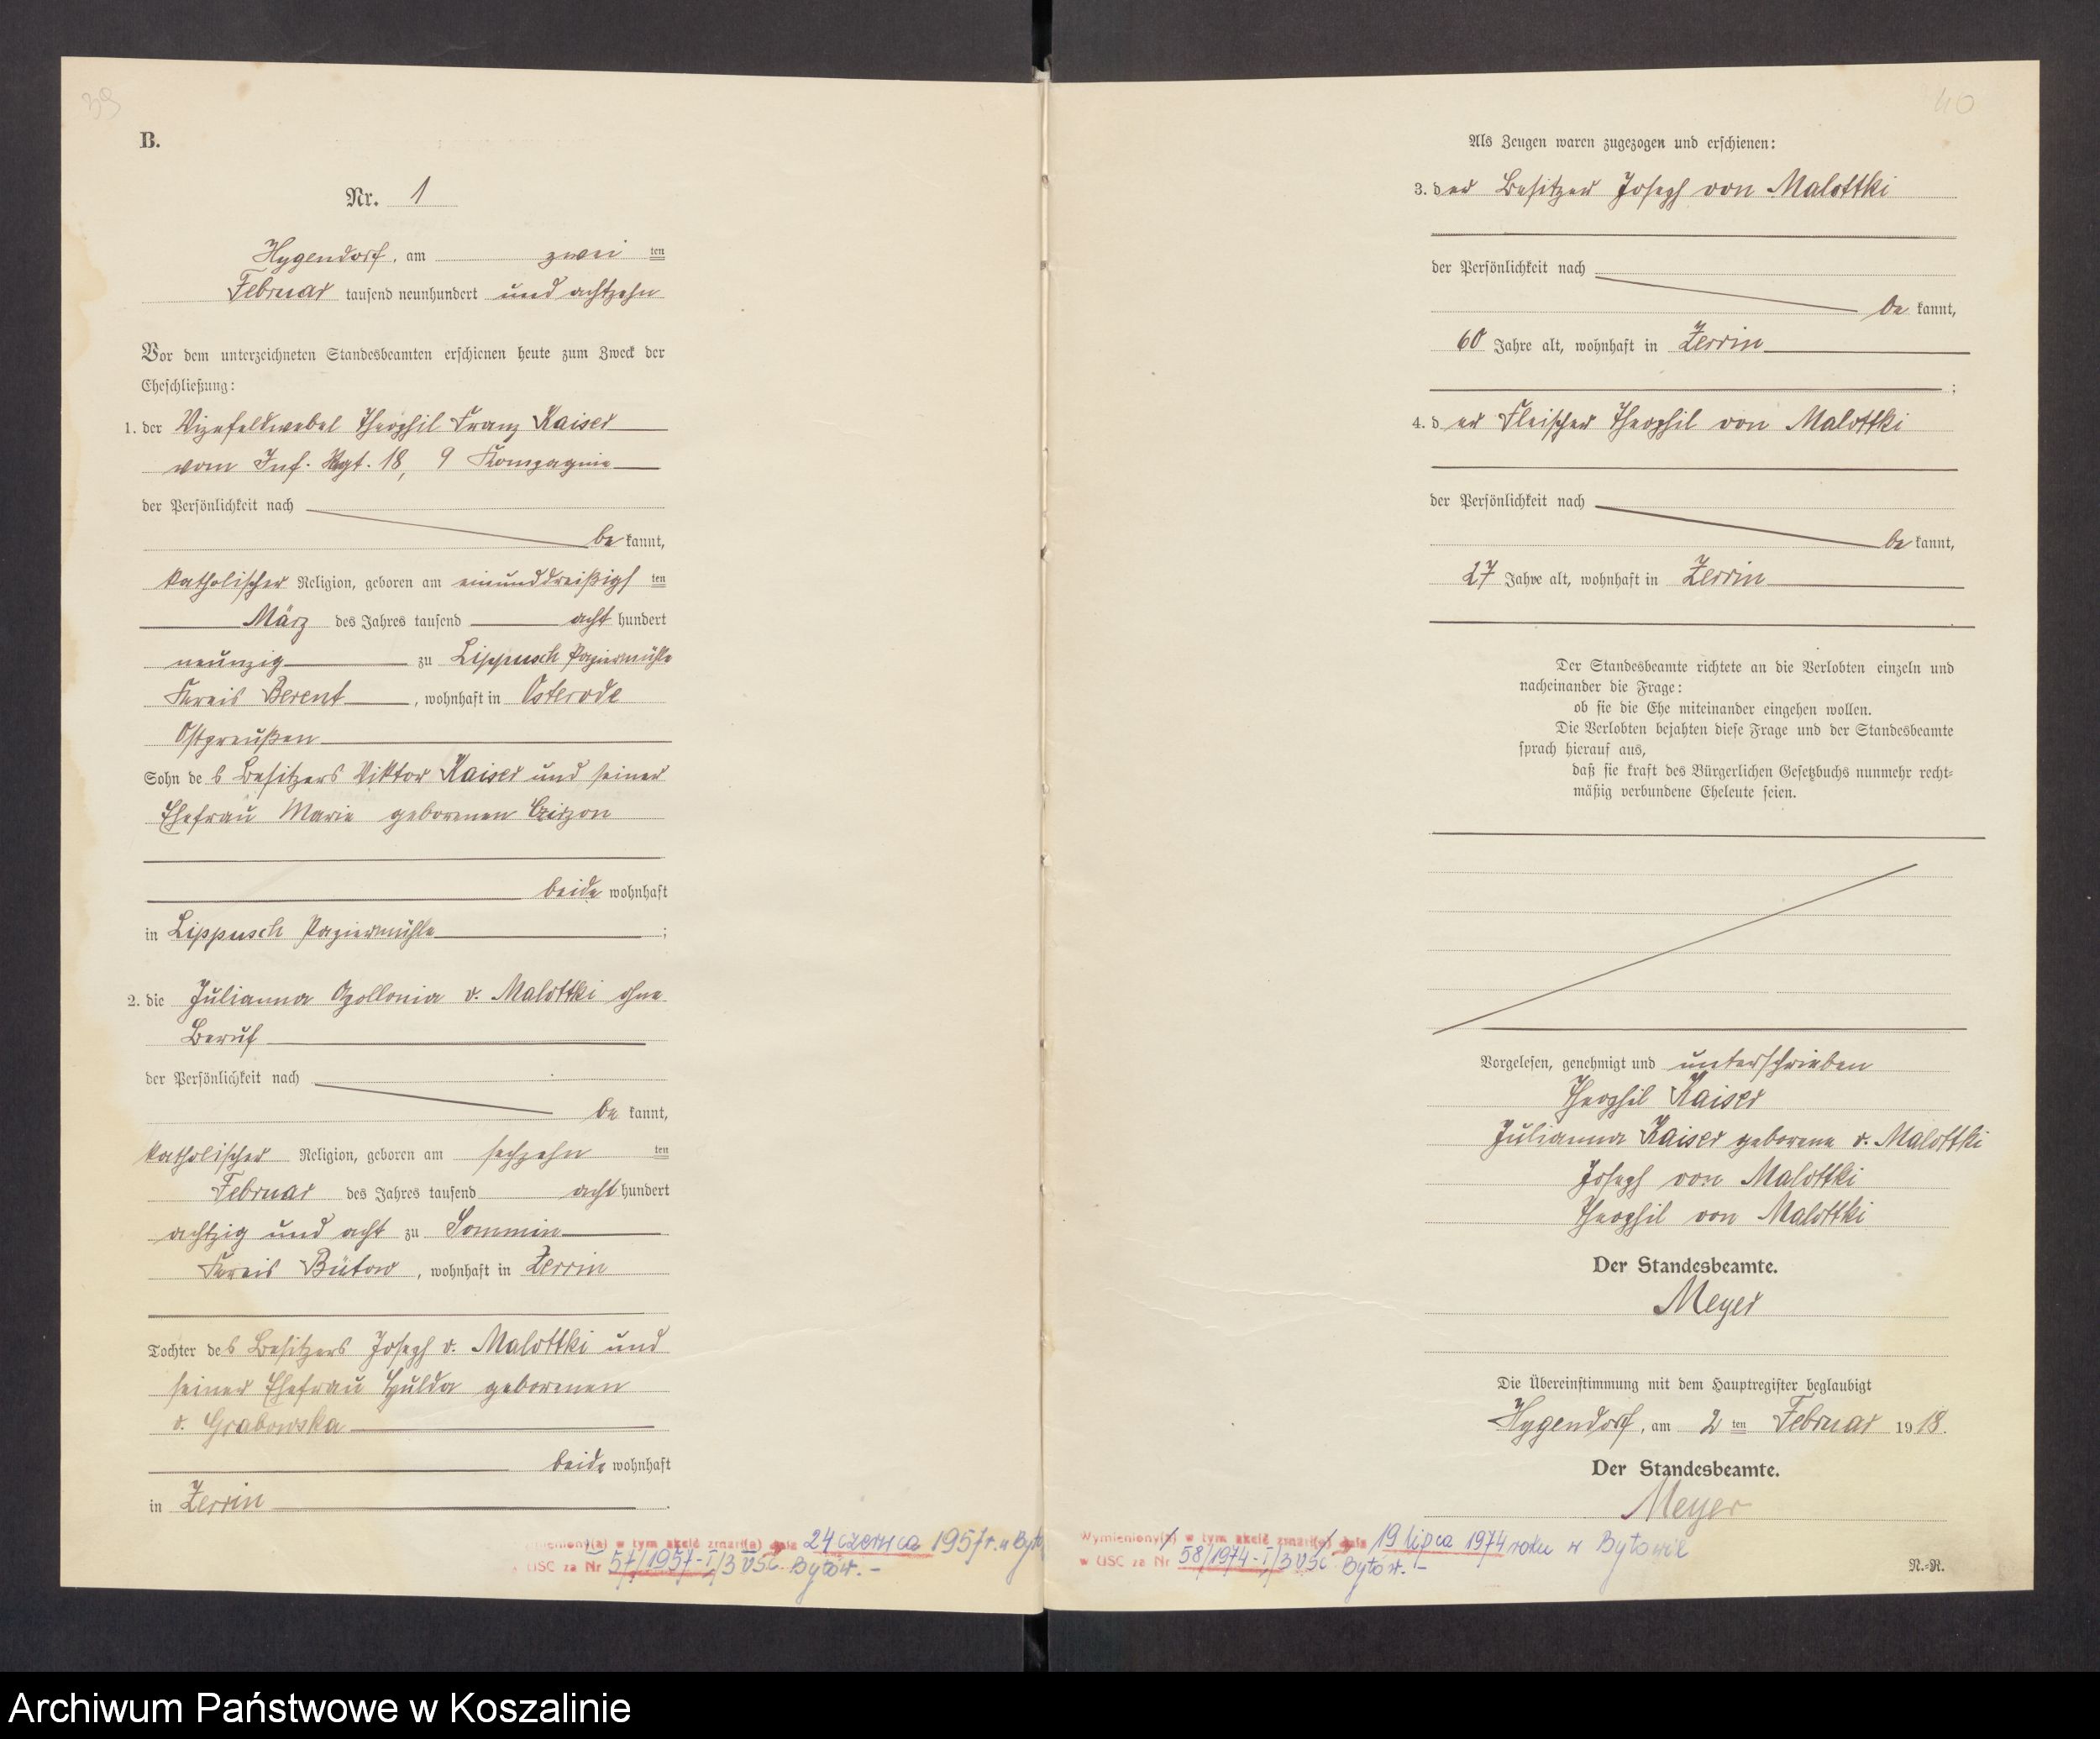 39
B.
Nr. 1
Hygendorf, am zwei ten
Februar tausend neunhundert und achtzehn
Vor dem unterzeichneten Standesbeamten erschienen heute zum Zweck der
Eheschließung:
1. der Vizefeldwebel Theophil Franz Kaiser
vom Inf. Rgt. 18, 9 Kompagnie
der Persönlichkeit nach
be kannt,
katholischer Religion, geboren am einunddreißigs ten
März des Jahres tausend acht hundert
neunzig zu Lippusch Papiermühle
Kreis Berent, wohnhaft in Osterode
Ostpreußen
Sohn des Besitzers Viktor Kaiser und seiner
Ehefrau Marie geborenen
beide wohnhaft
in Lippusch Papiermühle ;
2. die Julianna Apollonia v. Malottki ohne
Beruf
der Persönlichkeit nach
be kannt,
katholischer Religion, geboren am sechzehn ten
Februar des Jahres tausend acht hundert
achtzig und acht zu Sommin
Kreis Bütow, wohnhaft in Zerrin
Tochter des Besitzers Joseph v. Malottki und
seiner Ehefrau Hulda geborenen
v. Grabowska
beide wohnhaft
in Zerrin .
w tym akcie zmarł(a) dnia 24 czerwca 1957 r. w
w USC za Nr 57/1957-I/3 USC Bytów. –
40
Als Zeugen waren zugezogen und erschienen:
3. der Besitzer Joseph von Malottki
der Persönlichkeit nach
be kannt,
60 Jahre alt, wohnhaft in Zerrin
;
4. d er Fleischer Theophil von Malottki
der Persönlichkeit nach
be kannt,
27 Jahre alt, wohnhaft in Zerrin
Der Standesbeamte richtete an die Verlobten einzeln und
nacheinander die Frage:
ob sie die Ehe miteinander eingehen wollen.
Die Verlobten bejahten diese Frage und der Standesbeamte
sprach hierauf aus,
daß sie kraft des Bürgerlichen Gesetzbuchs nunmehr recht=
mäßig verbundene Eheleute seien.
Vorgelesen, genehmigt und unterschrieben
Theophil Kaiser
Julianna Kaiser geborene v. Malottki
Joseph von Malottki
Theophil von Malottki
Der Standesbeamte.
Meyer
Die Übereinstimmung mit dem Hauptregister beglaubigt
Hygendorf, am 2 ten Februar 1918.
Der Standesbeamte.
Meyer
Wymieniony(a) w tym akcie zmarł(a) dnia 19 lipca 1974 roku w Bytowie
w USC za Nr 58/1974-I/3 USC Bytów. –
N.=R.
Archiwum Państwowe w Koszalinie